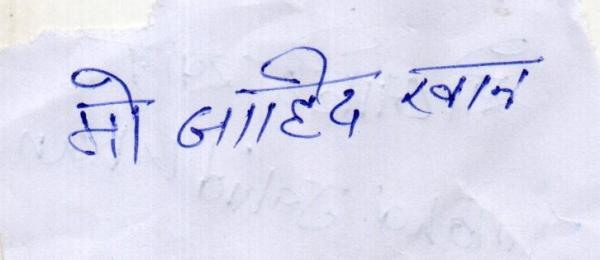 मो जाहिद खान